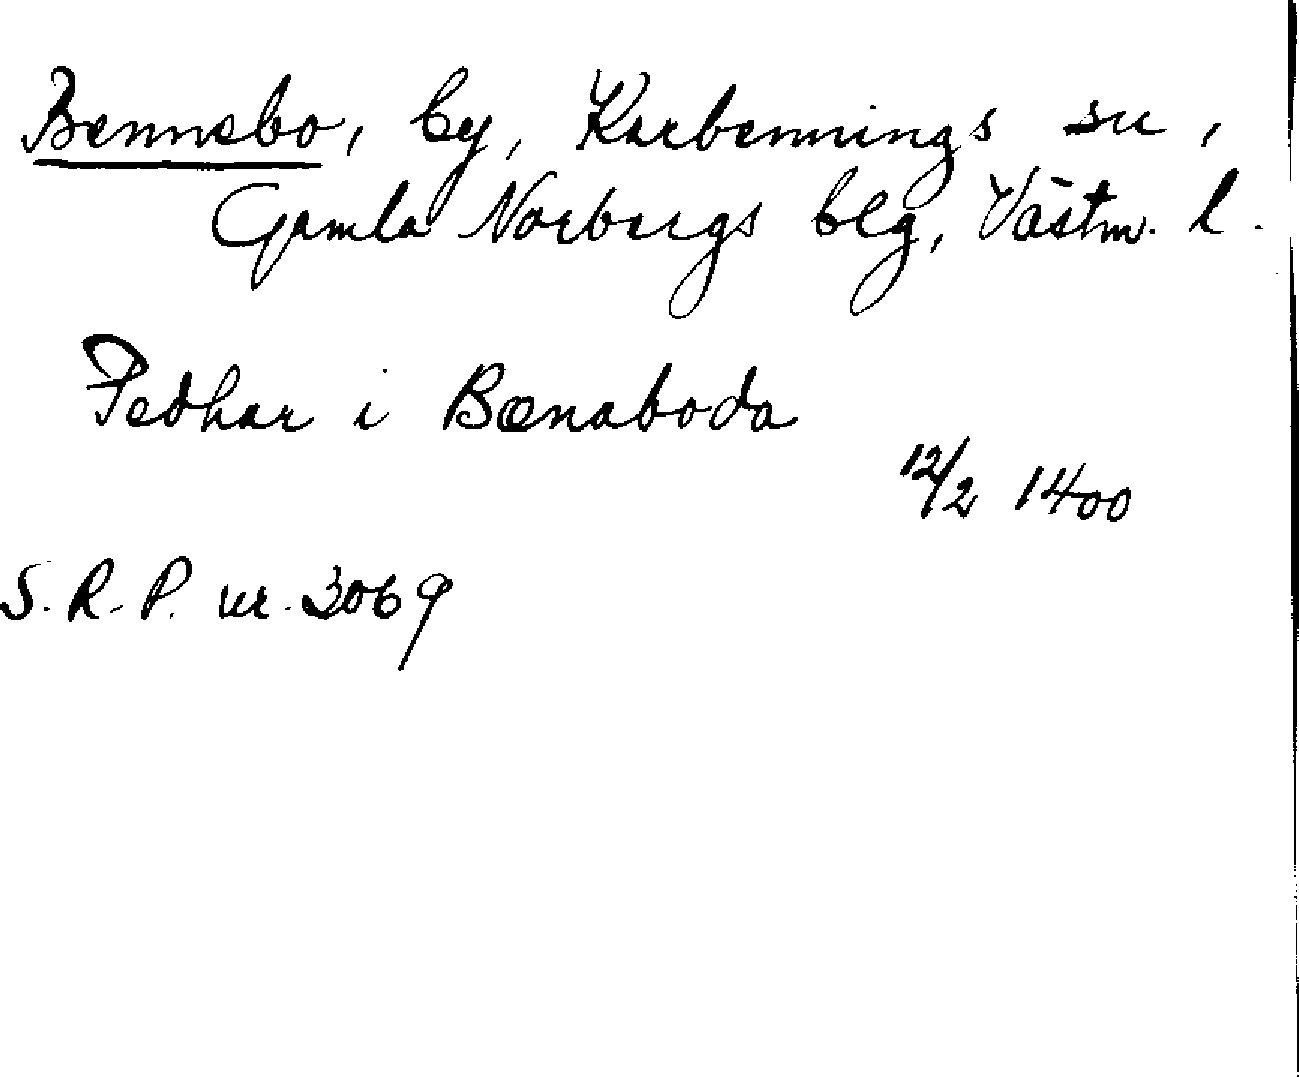 Bennebo, by, Karbennings sn,
Gamla Norbergs blg, Västm. l.
Pedhar i Bænaboda
12/2 1400
S. R. P. nr. 3069